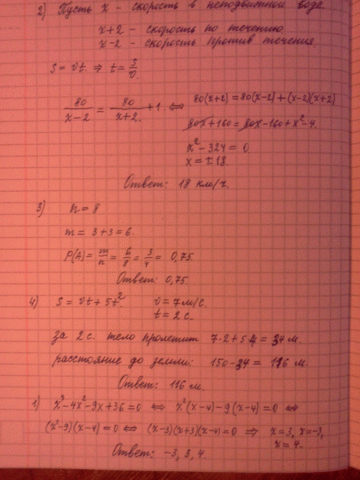 2) Пусть x - скорость в неподвижной воде
x+2 - скорость по течению
x-2 - скорость против течения
S = vt ⇒ t = S/v
80/(x-2) = 80/(x+2) + 1 ⇔ 80(x+2) = 80(x-2) + (x-2)(x+2)
80x+160 = 80x-160+x²-4
x²-324 = 0
x = ±18.
Ответ: 18 км/ч.
3) n = 8
m = 3+3 = 6
P(A) = m/n = 6/8 = 3/4 = 0,75
Ответ: 0,75
4) S = vt + 5t² v = 7 м/с.
t = 2 с.
за 2 с. тело пролетит 7·2+5·4 = 34 м.
расстояние до земли: 150-34 = 116 м.
Ответ: 116 м.
1) x³-4x²-9x+36 = 0 ⇔ x²(x-4)-9(x-4) = 0 ⇔
(x²-9)(x-4) = 0 ⇔ (x-3)(x+3)(x-4) = 0 ⇒ x=3, x=-3,
x=4.
Ответ: -3, 3, 4.